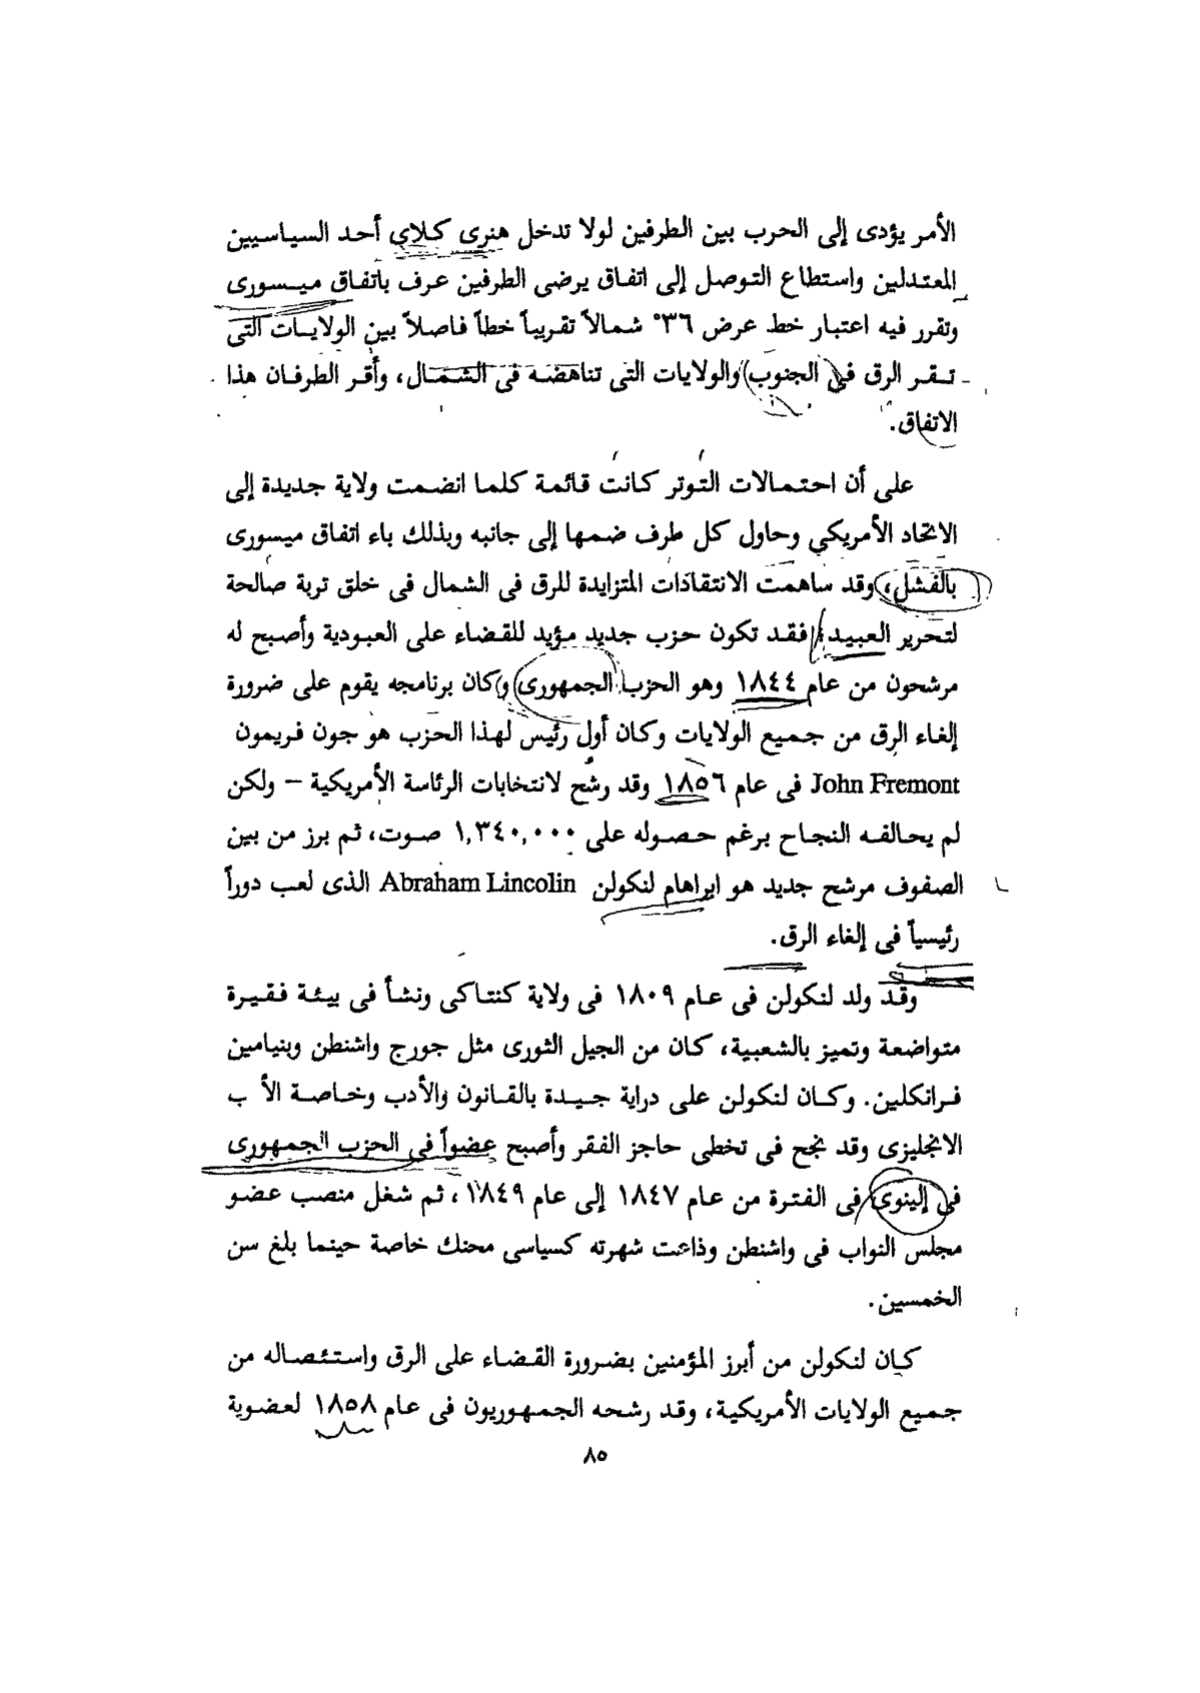 الأمر يؤدى إلى الحرب بين الطرفين لولا تدخل هنرى كلاى أحد السياسيين
المعتدلين واستطاع التوصل إلى اتفاق يرضى الطرفين عرف باتفاق ميسورى
وتقرر فيه اعتبار خط عرض ٣٦° شمالاً تقريباً خطاً فاصلاً بين الولايات التى
تقر الرق فى الجنوب والولايات التى تناهضه فى الشمال، وأقر الطرفان هذا
الاتفاق.
على أن احتمالات التوتر كانت قائمة كلما انضمت ولاية جديدة إلى
الاتحاد الأمريكي وحاول كل طرف ضمها إلى جانبه وبذلك باء اتفاق ميسورى
بالفشل، وقد ساهمت الانتقادات المتزايدة للرق فى الشمال فى خلق تربة صالحة
لتحرير العبيد، فقد تكون حزب جديد مؤيد للقضاء على العبودية وأصبح له
مرشحون من عام ١٨٤٤ وهو الحزب الجمهورى وكان برنامجه يقوم على ضرورة
إلغاء الرق من جميع الولايات وكان أول رئيس لهذا الحزب هو جون فريمون
John Fremont فى عام ١٨٥٦ وقد رشح لانتخابات الرئاسة الأمريكية – ولكن
لم يحالفه النجاح برغم حصوله على ١,٣٤٠,٠٠٠ صوت، ثم برز من بين
الصفوف مرشح جديد هو ابراهام لنكولن Abraham Lincolin الذى لعب دوراً
رئيسياً فى إلغاء الرق.
وقد ولد لنكولن فى عام ١٨٠٩ فى ولاية كنتاكى ونشأ فى بيئة فقيرة
متواضعة وتميز بالشعبية، كان من الجيل الثورى مثل جورج واشنطن وبنيامين
فرانكلين. وكان لنكولن على دراية جيدة بالقانون والأدب وخاصة الأ ب
الانجليزى وقد نجح فى تخطى حاجز الفقر وأصبح عضواً فى الحزب الجمهورى
فى إلينوى فى الفترة من عام ١٨٤٧ إلى عام ١٨٤٩، ثم شغل منصب عضو
مجلس النواب فى واشنطن وذاعت شهرته كسياسى محنك خاصة حينما بلغ سن
الخمسين.
كان لنكولن من أبرز المؤمنين بضرورة القضاء على الرق واستئصاله من
جميع الولايات الأمريكية، وقد رشحه الجمهوريون فى عام ١٨٥٨ لعضوية
٨٥